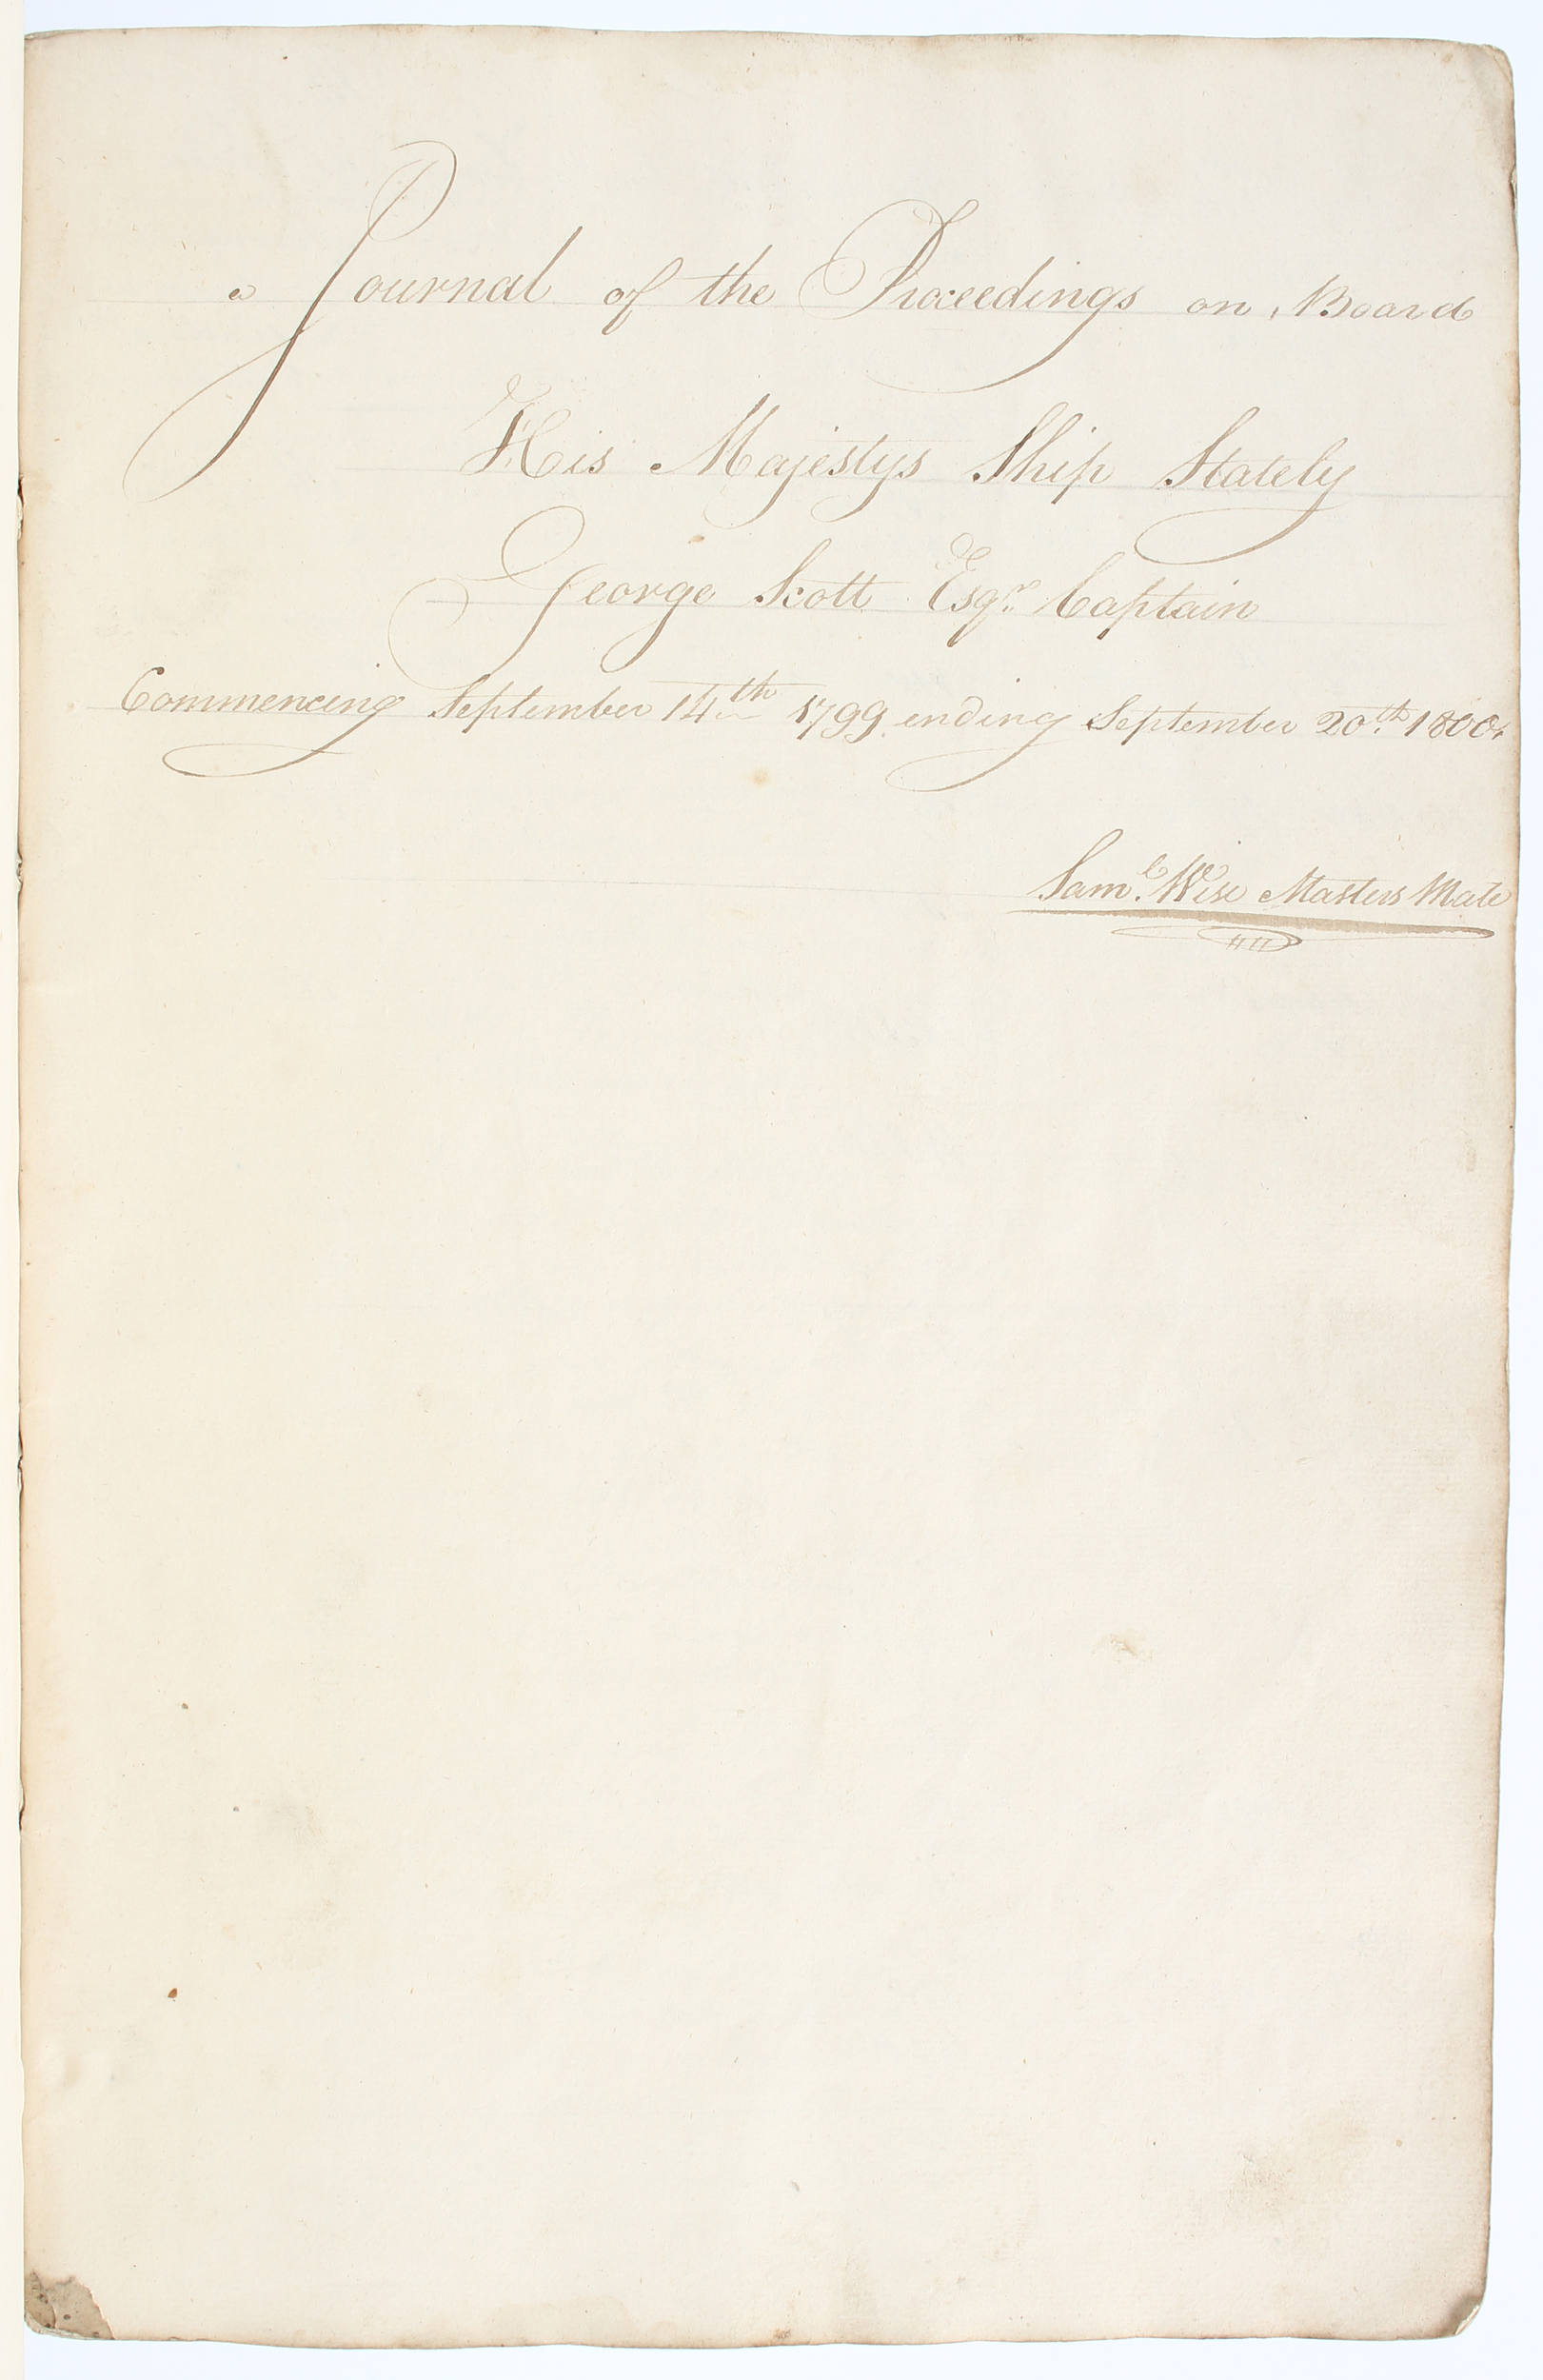 a Journal of the Proceedings on Board
His Majestys Ship Stately
George Scott Esqr. Captain
Commencing September 14th 1799 ending September 20th. 1800.
Saml. Wise Masters Mate